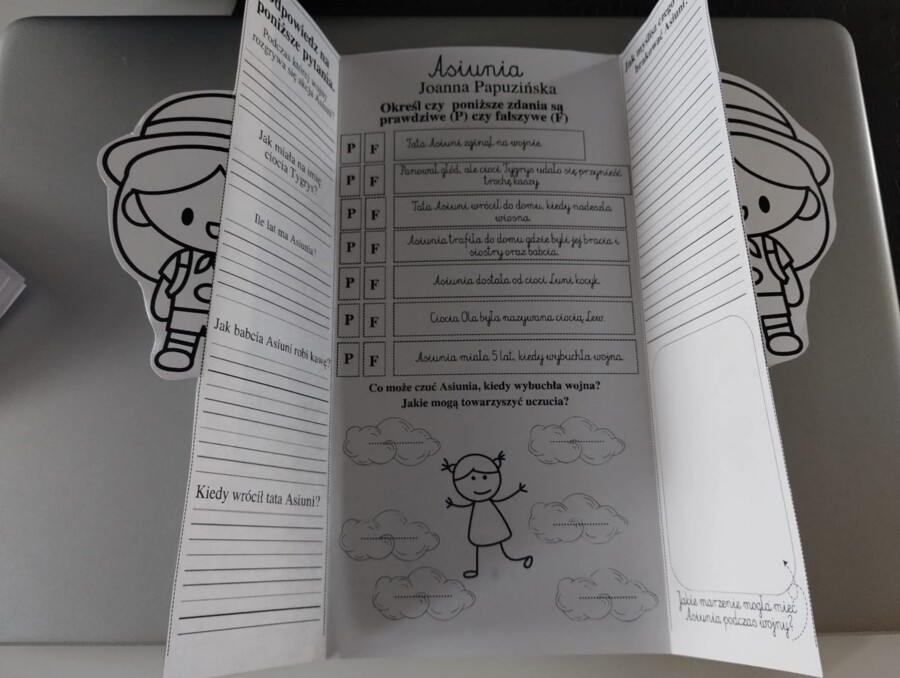 Odpowiedz na
poniższe pytania.
Podczas której wojny
rozgrywa się akcja Asiuni?
Jak miała na imię
ciocia Tygrys?
Ile lat ma Asiunia?
Jak babcia Asiuni robi kawę?
Kiedy wrócił tata Asiuni?
Asiunia
Joanna Papuzińska
Określ czy poniższe zdania są
prawdziwe (P) czy fałszywe (F)
P F Tata Asiuni zginął na wojnie.
P F Panował głód, ale cioci Tygrys udało się przynieść
trochę kaszy.
P F Tata Asiuni wrócił do domu, kiedy nadeszła
wiosna.
P F Asiunia trafiła do domu gdzie byli jej bracia i
siostry oraz babcia.
P F Asiunia dostała od cioci Luni kocyk.
P F Ciocia Ola była nazywana ciocią Lew.
P F Asiunia miała 5 lat, kiedy wybuchła wojna.
Co może czuć Asiunia, kiedy wybuchła wojna?
Jakie mogą towarzyszyć uczucia?
Jak myślisz czego
brakować Asiuni?
Jakie marzenie mogła mieć
Asiunia podczas wojny?